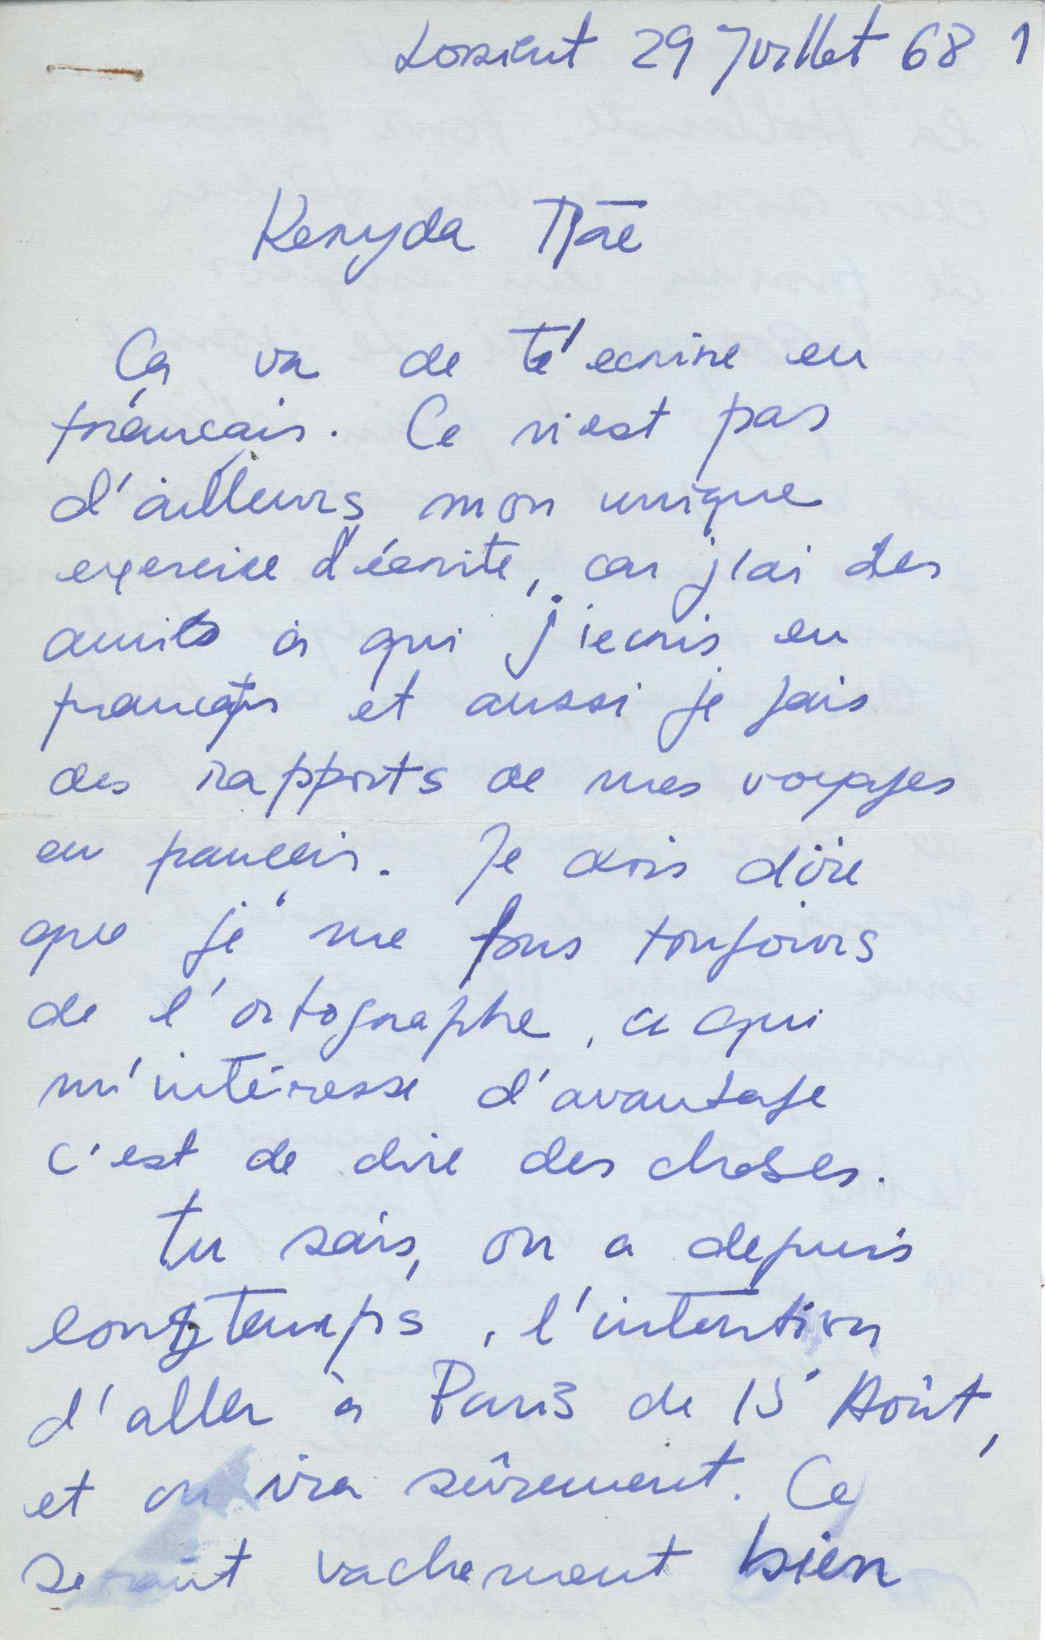 Lorient 29 Juillet 68 1
Ça va de t'ecrire en
français. Ce n'est pas
d'ailleurs mon unique
exercice d'écrite, car j'ai des
amits à qui j'ecris en
français et aussi je fais
des rapports de mes voyages
en francais. Je dois dire
que je me fous toujours
de l'ortographe, ce qui
m'intéresse d'avantage
c'est de dire des choses.
Tu sais, on a depuis
longtemps, l'intention
d'aller à Paris de 15 Août,
et on ira sûrement. Ce
serait vachement bien